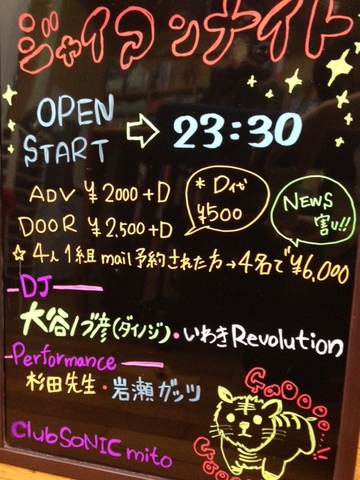 ジャイアンナイト
OPEN
START ⇨ 23:30
ADV ¥2000+D
DOOR ¥2,500+D
*D代 ¥500
NEWS 割り!!
☆4人1組mail予約された方→4名で¥6,000
DJ
大谷ノブ彦(ダイノジ)・いわきRevolution
Performance
杉田先生・岩瀬ガッツ
GaOOOO...!!
Club SONIC mito